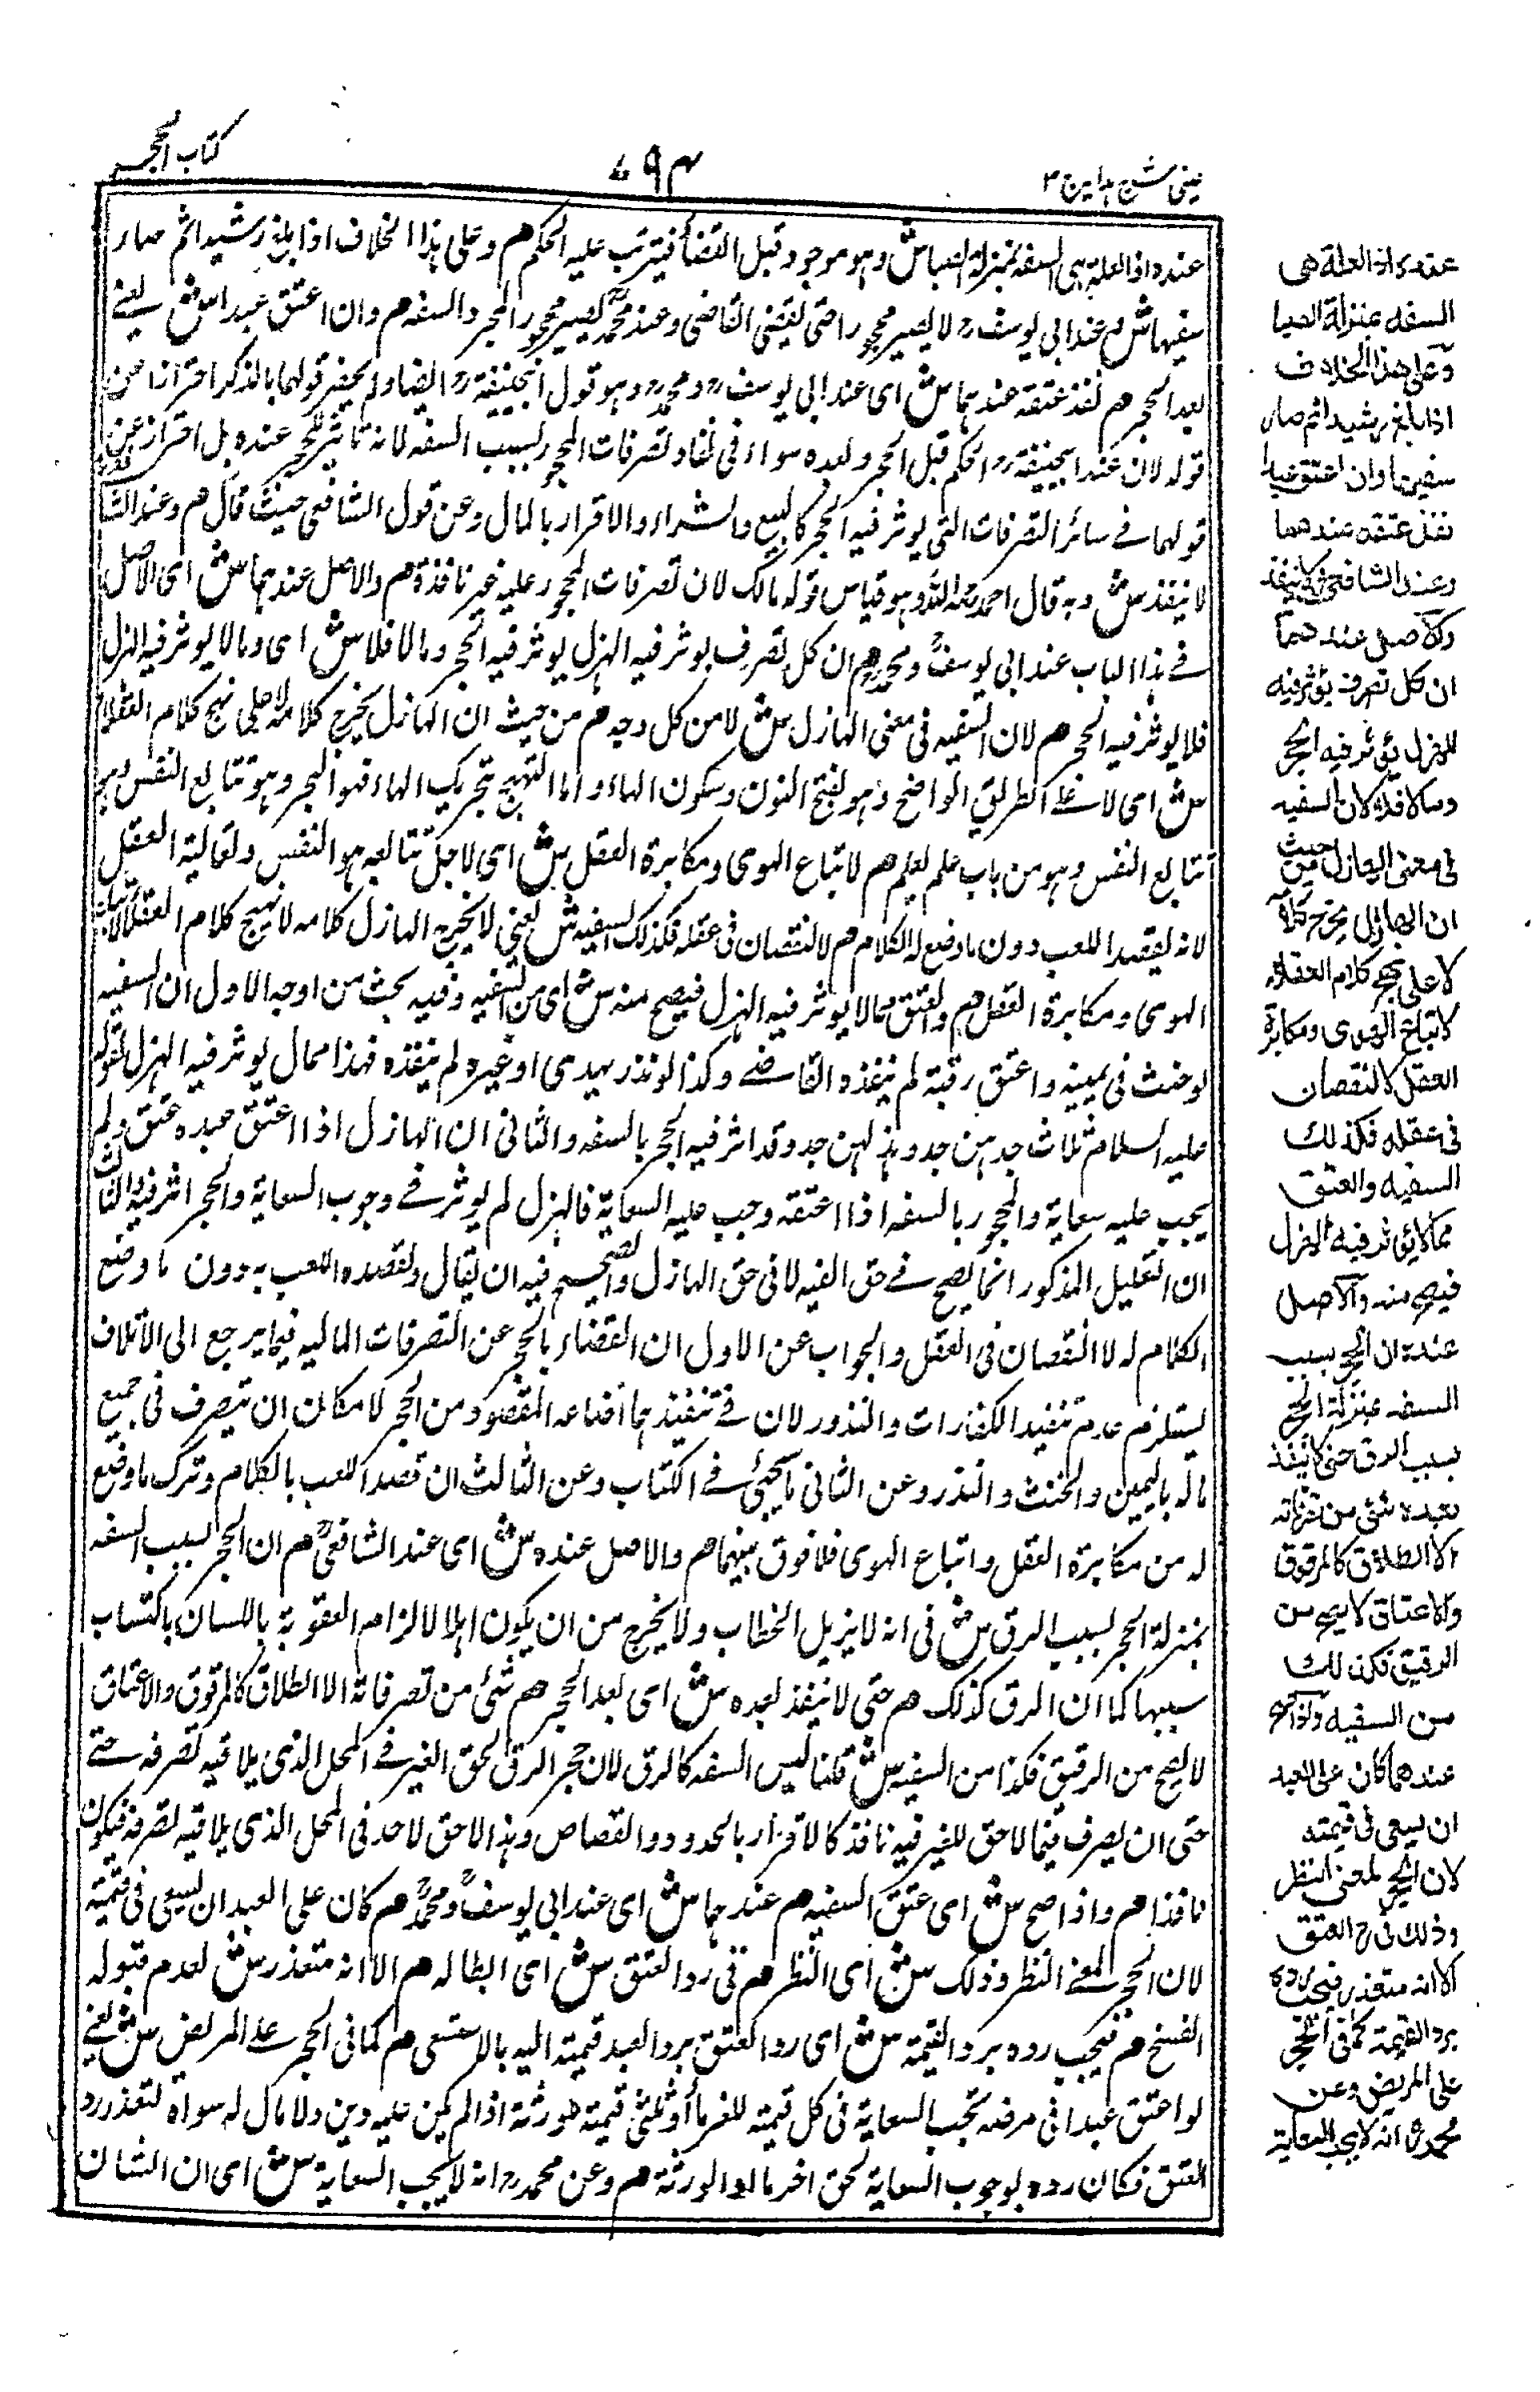 عینی شرح ہدایہ ٣
٧٩٣
کتاب الحجر
عنده اذ العلة هی السفه بمنزلة الصبا ش وهو موجود قبل القضاء فیترتب علیه الحکم هم وعلی هذا الخلاف اذا بلغ رشیدا ثم صار
سفیها ش وعند ابی یوسف رح لا یصیر محجورا حتی یقضی القاضی وعند محمد یصیر محجورا بمجرد السفه هم وان اعتق عبدا ش یعنی
بعد الحجر هم نفذ عتقه عندهما ش ای عند ابی یوسف رح ومحمد رح وهو قول ابیحنیفة رح ایضا ولم یخص قولهما بالذکر احترازا عن
قوله لان عند ابیحنیفة رح الحکم قبل الحجر وبعده سواء فی نفاد تصرفات المحجور بسبب السفه لانه لا تاثیر للحجر عنده بل احتراز عن
قولهما فی سائر التصرفات التی یوثر فیه الحجر کالبیع والشراء والاقرار بالمال وعن قول الشافعی حیث قال هم وعند الشافعی
لا ینفذ ش وبه قال احمد رحمه الله وهو قیاس قوله مالک لان تصرفات المحجور علیه غیر نافذة هم والاصل عندهما ش ای الاصل
فی هذا الباب عند ابی یوسف ومحمد هم ان کل تصرف یوثر فیه الهزل یوثر فیه الحجر وما لا فلا ش ای وما لا یوثر فیه الهزل
فلا یوثر فیه الحجر هم لان السفیه فی معنی الهازل ش لا من کل وجه هم من حیث ان الهازل یخرج کلامه لا علی نهج کلام العقلاء
ش ای لا علی الطریق الواضح وهو بفتح النون وسکون الهاء واما النهج بتحریک الهاء فهو البهر وهو تتابع النفس
تتابع النفس وهو من باب علم یعلم هم لاتباع الهوی ومکابرة العقل ش ای لاجل تتابعه هو النفس ولغالبة العقل
لانه یقصد اللعب دون ما وضع له الکلام هم لا لنقصان فی عقله فکذلک السفیه ش یعنی لا یخرج الهازل کلامه لا نهج کلام العقلاء لاتباع
الهوی ومکابرة العقل هم والعتق مما لا یوثر فیه الهزل فیصح منه ش ای من السفیه وفیه بحث من اوجه الاول ان السفیه
لو حنث فی یمینه واعتق رقبة لم ینفذه القاضی وکذا لو نذر بهدی او غیره لم ینفذه فهذا مما لا یوثر فیه الهزل لقوله
علیه السلام ثلاث جدهن جد وهزلهن جد وقد اثر فیه الحجر بالسفه والثانی ان الهازل اذا اعتق عبده عتق ولم
یجب علیه سعایة والمحجور بالسفه اذا اعتقه وجب علیه السعایة فالهزل لم یوثر فی وجوب السعایة والحجر اثر فیه والثالث
ان التعلیل المذکور انما یصح فی حق السفیه لا فی حق الهازل والصحیح فیه ان یقال ولقصده اللعب به دون ما وضع
الکلام له لا لنقصان فی العقل والجواب عن الاول ان القضاء بالحجر عن التصرفات المالیه فیما یرجع الی الاتلاف
یستلزم عدم تنفیذ الکفارات والنذور لان فی تنفیذهما اضاعه المقصود من الحجر لامکان ان یتصرف فی جمیع
ماله بالیمین والحنث والنذر وعن الثانی ما سیجیٔ فی الکتاب وعن الثالث ان قصد اللعب بالکلام وترک ما وضع
له من مکابرة العقل واتباع الهوی فلا فرق بینهما هم والاصل عنده ش ای عند الشافعی هم ان الحجر بسبب السفه
بمنزلة الحجر بسبب الرق ش فی انه لا یزیل الخطاب ولا یخرج من ان یکون اهلا لالزام العقوبة باللسان باکتساب
سببها کما ان الرق کذلک هم حتی لا ینفذ بعده ش ای بعد الحجر هم شئی من تصرفاته الا الطلاق کالمرقوق والاعتاق
لا یصح من الرقیق فکذا من السفیه ش قلنا لیس السفه کالرق لان حجر الرق لحق الغیر فی المحل الذی یلاقیه تصرفه حتی
حتی ان یصرف فیما لا حق للغیر فیه نافذ کالاقرار بالحدود والقصاص وهذا لا حق لاحد فی المحل الذی یلاقیه تصرفه فیکون
نافذا هم واذا صح ش ای عتق السفیه هم عندهما ش ای عند ابی یوسف ومحمد هم کان علی العبد ان یسعی فی قیمته
لان الحجر لمعنی النظر وذلک ش ای النظر هم فی رد العتق ش ای ابطاله هم الا انه متعذر ش لعدم قبوله
الفسخ هم فیجب رده برد القیمة ش ای رد العتق برد العبد قیمته الیه بالاستسعی هم کما فی الحجر علی المریض ش یعنی
لو اعتق عبدا فی مرضه تجب السعایة فی کل قیمته للغرماء او ثلثی قیمته للورثة اذا لم یکن علیه دین ولا مال له سواه لتعذر رد
العتق فکان رده بوجوب السعایة لحق الغرماء او الورثة هم وعن محمد رح انه لا یجب السعایة ش ای ان الشان
عنده اذ العلة هی
السفه بمنزلة الصبا
وعلی هذا الخلاف
اذا بلغ رشیدا ثم صار
سفیها وان اعتق عبدا
نفذ عتقه عندهما
وعند الشافعی لا ینفذ
والاصل عندهما
ان کل تصرف یؤثر فیه
الهزل یؤثر فیه الحجر
وما لا فلا لان السفیه
فی معنی الهازل من حیث
ان الهازل یخرج کلامه
لا علی نهج کلام العقلاء
لاتباع الهوی ومکابرة
العقل لا لنقصان
فی عقله فکذلک
السفیه والعتق
مما لا یؤثر فیه الهزل
فیصح منه والاصل
عنده ان الحجر بسبب
السفه بمنزلة الحجر
بسبب الرق حتی لا ینفذ
بعده شئی من تصرفاته
الا الطلاق کالمرقوق
والاعتاق لا یصح من
الرقیق فکذلک
من السفیه واذا صح
عندهما کان علی العبد
ان یسعی فی قیمته
لان الحجر لمعنی النظر
وذلک فی رد العتق
الا انه متعذر فیجب رده
برد القیمة کما فی الحجر
علی المریض وعن
محمد رح انه لا یجب السعایة